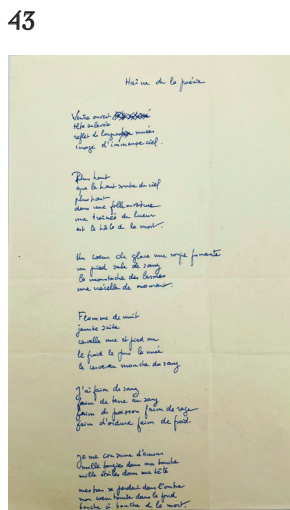 43
Haine de la poésie
Ventre ouvert
tête enlevée
reflet de longues nuées
image d'immense ciel.
Plus haut
que le haut sombre du ciel
plus haut
dans une folle ouverture
une traînée de lueur
est le halo de la mort.
Un coeur de glace une soupe fumante
un pied sale de sang
la moustache des larmes
une crécelle de mourant.
Flamme de nuit
jambe sciée
cervelle nue et pied nu
le froid le pus la nuée
le cerveau mouche du sang
J'ai faim de sang
faim de terre au sang
faim de poisson faim de rage
faim d'ordure faim de froid.
Je me consume d'amour
mille bougies dans ma bouche
mille étoiles dans ma tête
mes bras se perdent dans l'ombre
mon coeur tombe dans le fond
bouche à bouche de la mort.